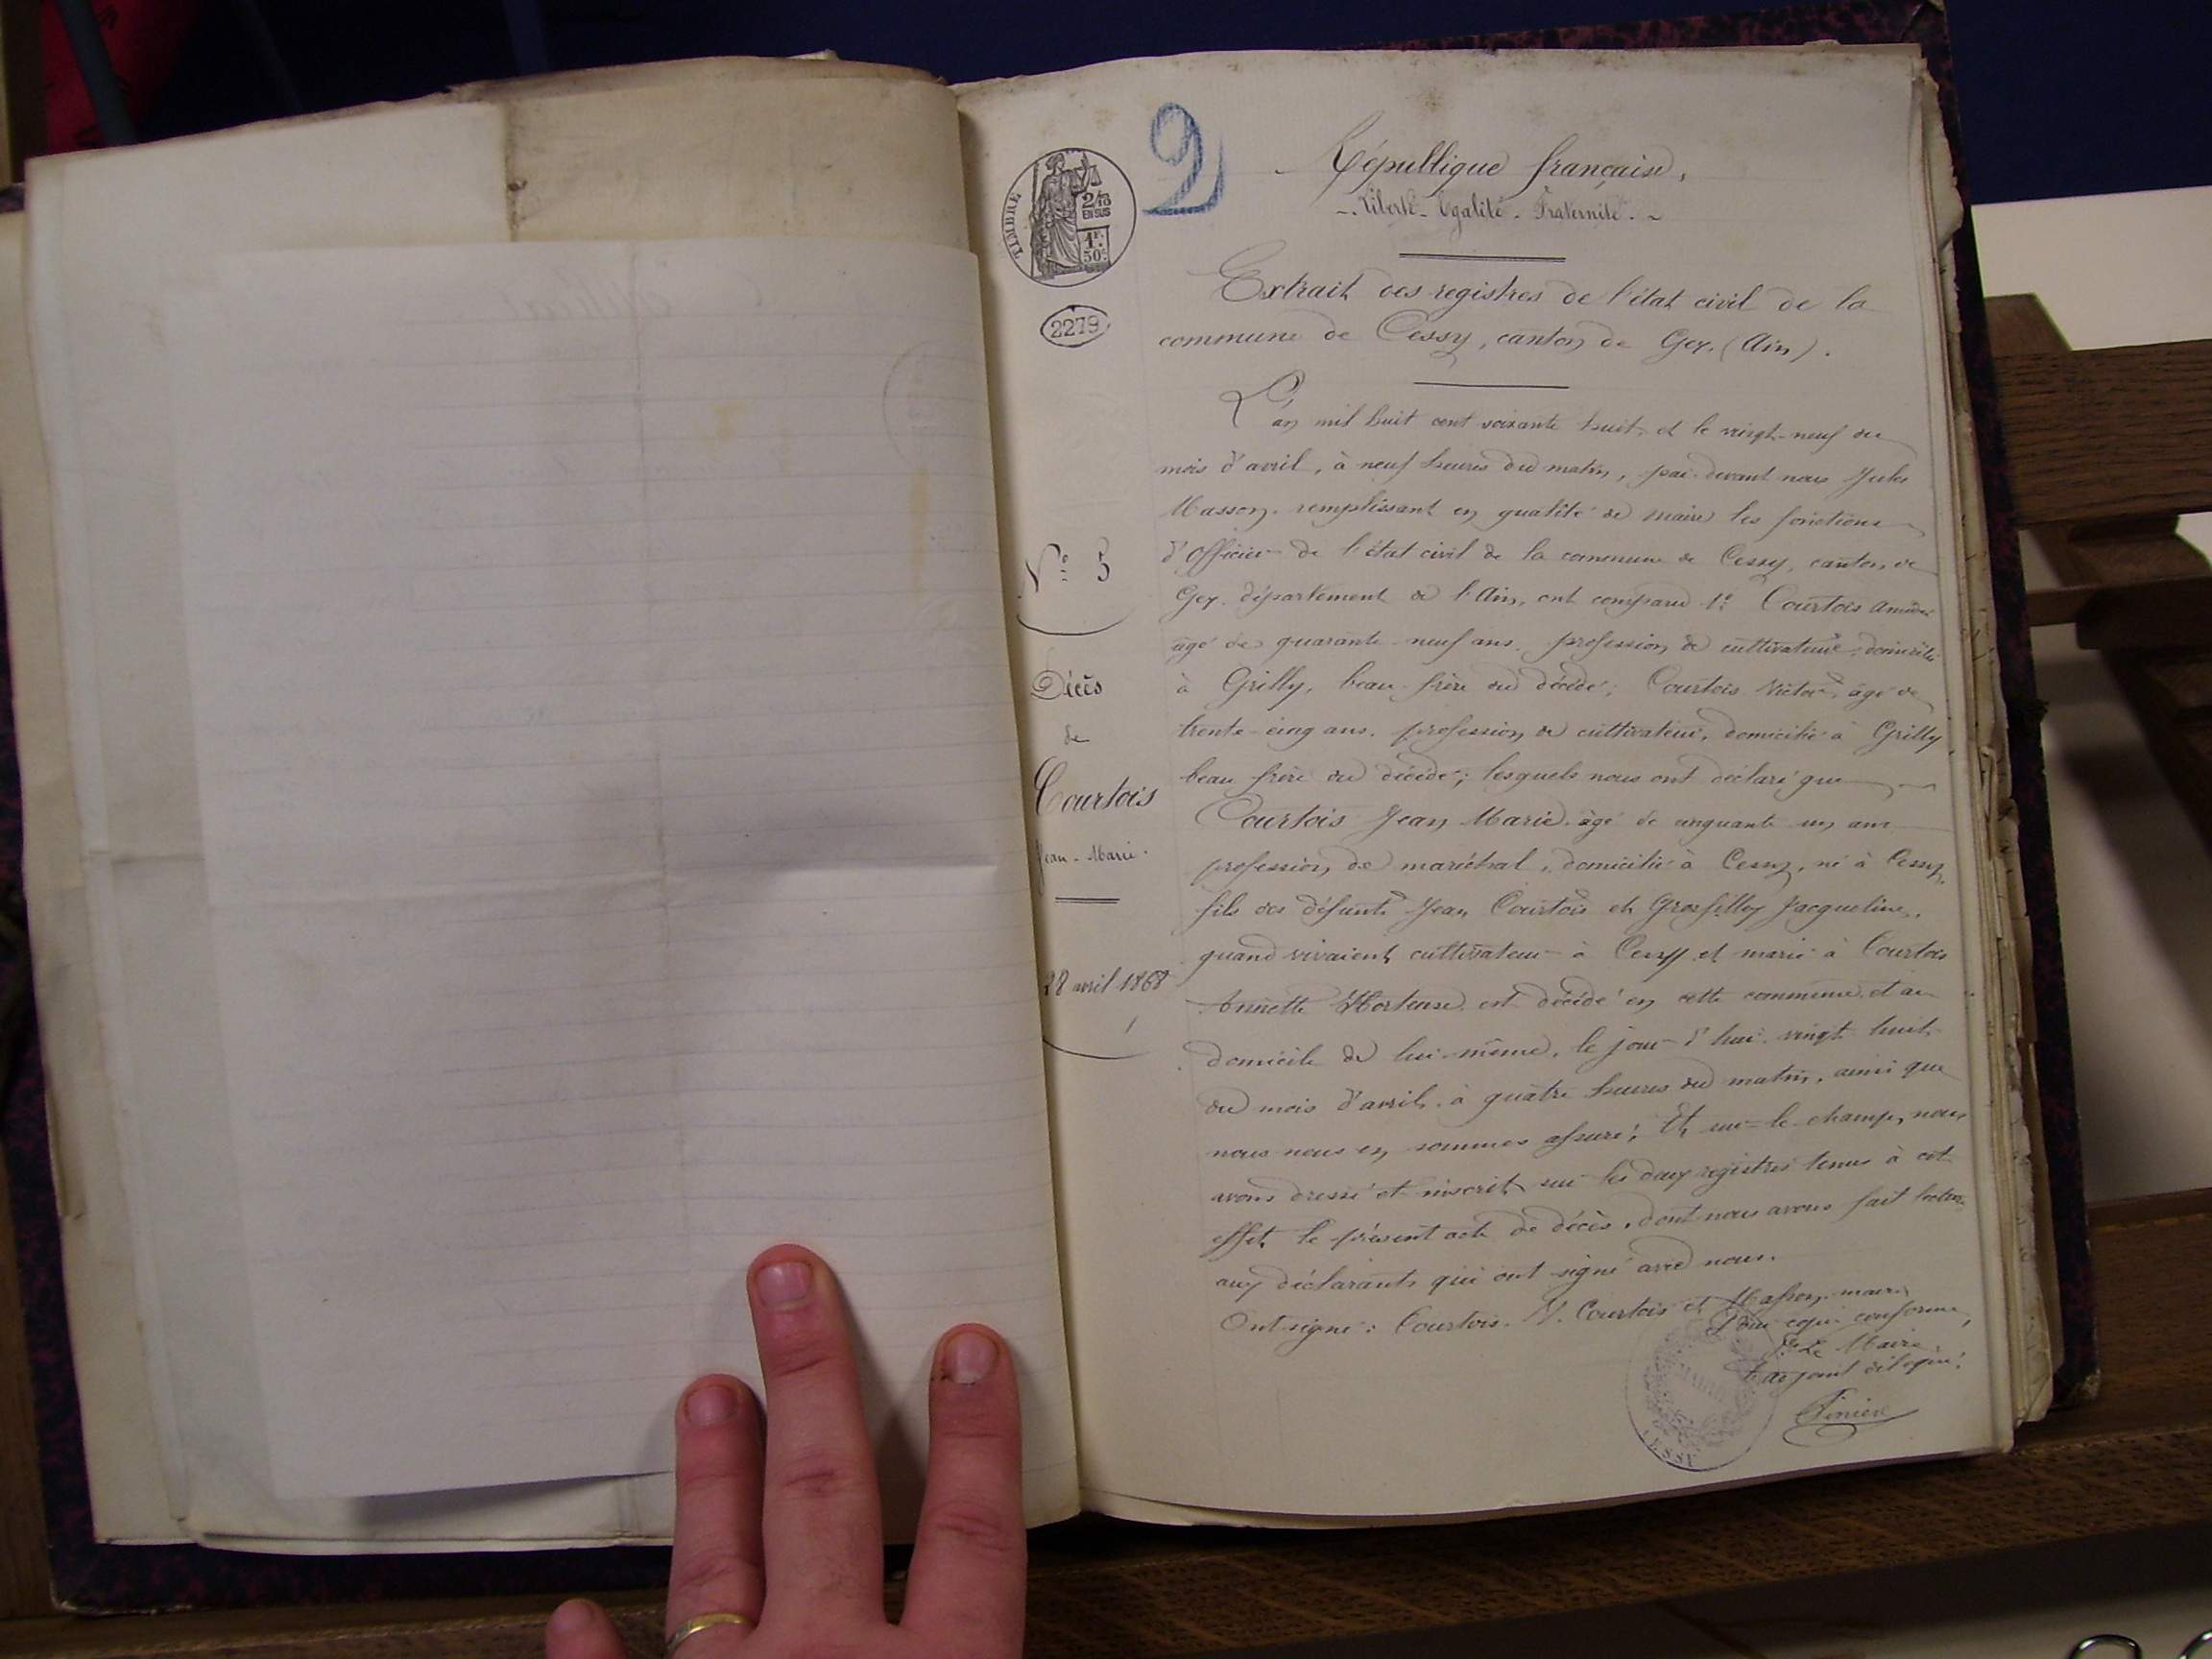 2
TIMBRE
2/10
EN SUS
1F.
50c
2279
République française.
Liberté - Egalité - Fraternité.
Extrait des registres de l'état civil de la
commune de Cessy, canton de Gex. (Ain).
N° 5
Décès
de
Courtois
Jean-Marie.
28 avril 1868
L'an mil huit cent soixante huit, et le vingt-neuf du
mois d'avril, à neuf heures du matin, par devant nous Jules
Masson, remplissant en qualité de maire les fonctions
d'officier de l'état civil de la commune de Cessy, canton de
Gex, département de l'Ain, ont comparu 1° Courtois Amédée
âgé de quarante-neuf ans, profession de cultivateur, domicilié
à Grilly, beau-frère du décédé; Courtois Victor, âgé de
trente-cinq ans, profession de cultivateur, domicilié à Grilly,
beau frère du décédé; lesquels nous ont déclaré que
Courtois Jean Marie, âgé de cinquante un ans
profession de maréchal, domicilié à Cessy, né à Cessy,
fils des défunts Jean Courtois et Grosfilley Jacqueline,
quand vivaient cultivateur à Cessy et marié à Courtois
Annette Hortense est décédé en cette commune et au
domicile de lui-même, le jour d'hui vingt huit
du mois d'avril, à quatre heures du matin, ainsi que
nous nous en sommes assuré; Et sur-le-champ, nous
avons dressé et inscrit sur les deux registres tenus à cet
effet, le présent acte de décès, dont nous avons fait lecture
aux déclarants qui ont signé avec nous.
Ont signé: Courtois. V. Courtois et Masson, maire
Pour copie conforme,
Pr Le Maire
L'adjoint délégué.
MAIRIE
CESSY